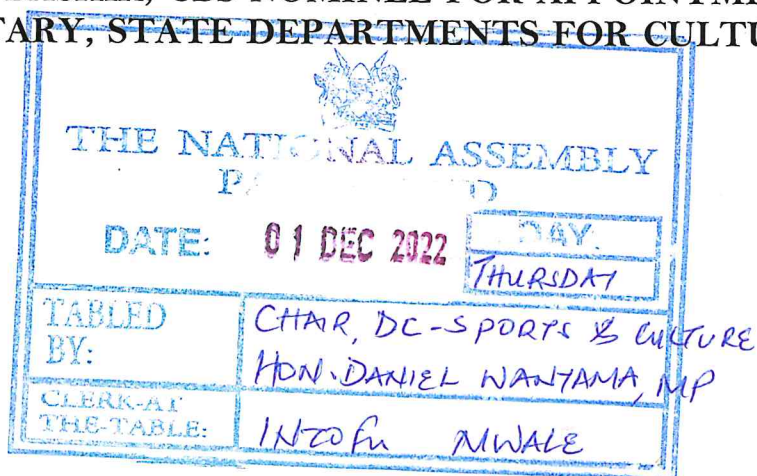 CBS NOMINEE FOR APPOINTM
TARY, STATE DEPARTMENTS FOR CULTU
THE NATIONAL ASSEMBLY
DATE: 01 DEC 2022
DAY.
THURSDAY
TABLED BY:
CHAIR, DC-SPORTS & CULTURE
HON. DANIEL WANYAMA, MP
CLERK-AT THE-TABLE:
MWALE